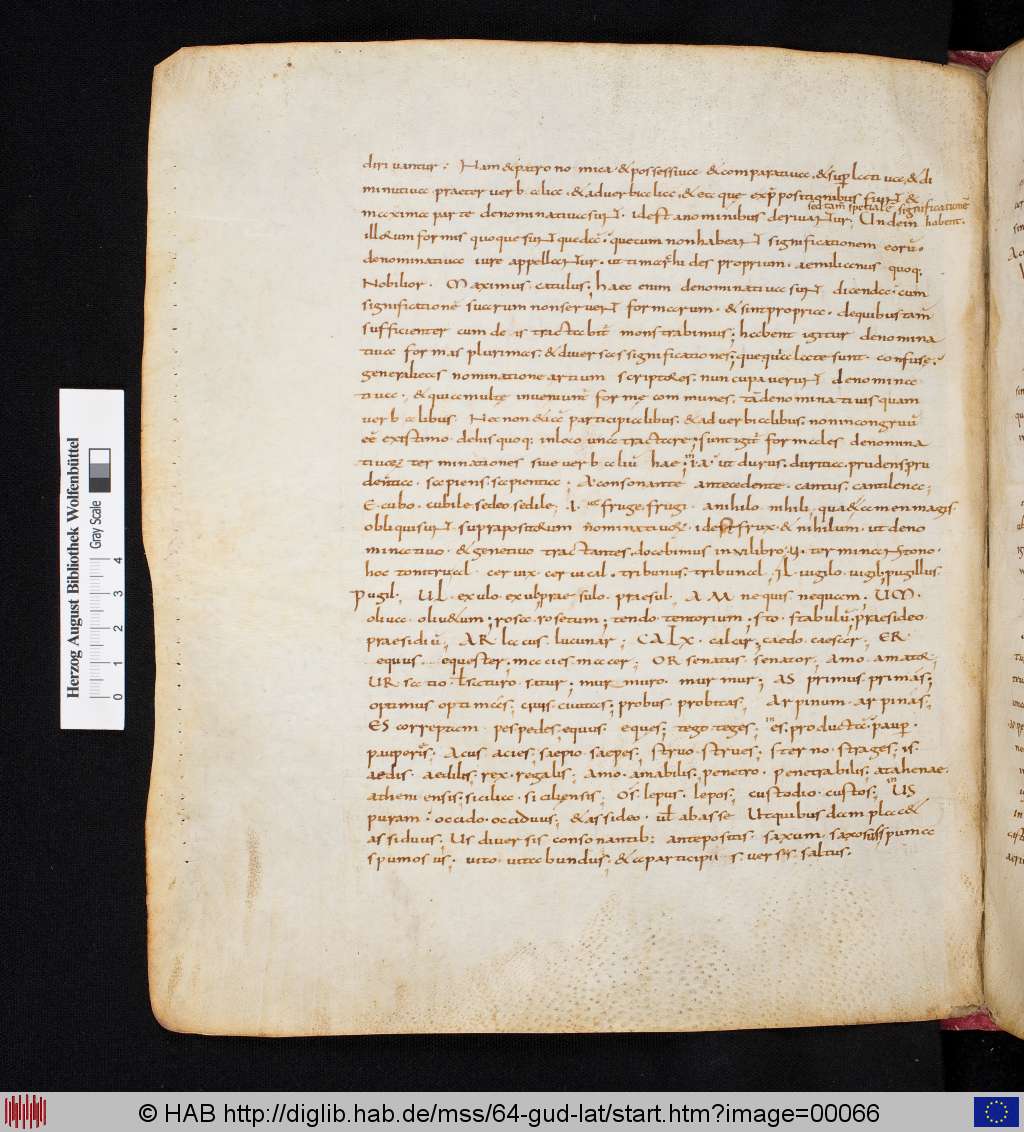 diri vantur : Nam & patro no mica · & possessiva & comparativa, & sup̅lativa, & di
minutiva praeter verbalia, & adverbialia, & ea que ex p̅positionibus fiunt &
sed tam̅ speciale̅ significatione̅
maxima parte denominativa sunt · id est a nominibus derivantur; Unde in habent ·
illorum formis quoque sunt quedā, quecum non habeant significationem eoru̅ ·
denominativa iure appellantur · ut timarchides proprium · aemilianus quoq;
Nobilior · Maximus catulus; haec enim denominativa sunt dicenda · cum
significatione̅ suarum non servent formarum · & sint propria · de quibus tam̅
sufficienter cum de is tractabit̅ monstrabimus; habent igitur denomina
tiva formas plurimas, & diversas significationes; que qu̅alate sunt · confuse,
generali eos nominatione artium scriptores, nuncupaverunt denomina
tiva, & quia multe inveniunt̅ forme communes, ta̅ denominativis quam
verbalibus · Nec non & ia̅ participialibus, & adverbialibus, non incongruu̅
ee̅ existimo de his quoq; in loco uno tractare; sunt igit̅ formales denomina
tivor̅ terminationes sive verbaliu̅ hae; in ·I·A· ut durus, duritia, prudens pru
dentia · sapiens, sapientia; A consonante antecedente · cantus, cantilena;
E · cubo · cubile · sedeo sedile; ·I· ut fruge, frugi · a nihilo nihili, qua & tamen magis
obliqui sunt supra positorum nominativor̅ · id est frux · & nihilum · ut deno
minativo · & genetivo tractantes, docebimus in VI libro; AL terminant̅ tono ·
hoc tonitrual cervix · cervical · tribunus, tribunal, IL vigilo vigil; pugillus
Pugil; UL · exulo exul; praesulo · praesul · AM nequis nequam; UM ·
oliva · oliv&um; rosa rosetum; tendo tentorium; sto stabulu̅; praesideo
praesidiu̅; AR lacus lacunar; CALX · calcar, caedo, caesar; ER ·
equus equester, macies macer; OR senatus senator; amo amator;
UR satio · ł saturo satur; murmuro · murmur; AS primus primas;
optimus optimas; civis civitas; probus probitas; Arpinum arpinas;
ES correptam pes pedes, equus eques; tego teges; in es, producta̅ paup̅
paup̅oris · Acus acies, saepio saepes, struo strues; sterno · strages; is ·
aedis aedilis, rex · regalis; Amo amabilis; penetro · penetrabilis; at ahenae
atheni ensis; sicilia · siciliensis; Os lepus, lepos; custodio custos; in US
puram · occido · occiduus; & assideo · ul̅ ab asse Ut quibus dam plac&
assiduus; Us diversis consonantib: antepositis · saxum · saxosus spuma
spumosus; vito vitabundus; & a participii s · versis, saltus ·
Herzog August Bibliothek Wolfenbüttel
Gray Scale
0 1 2 3 4
© HAB http://diglib.hab.de/mss/64-gud-lat/start.htm?image=00066